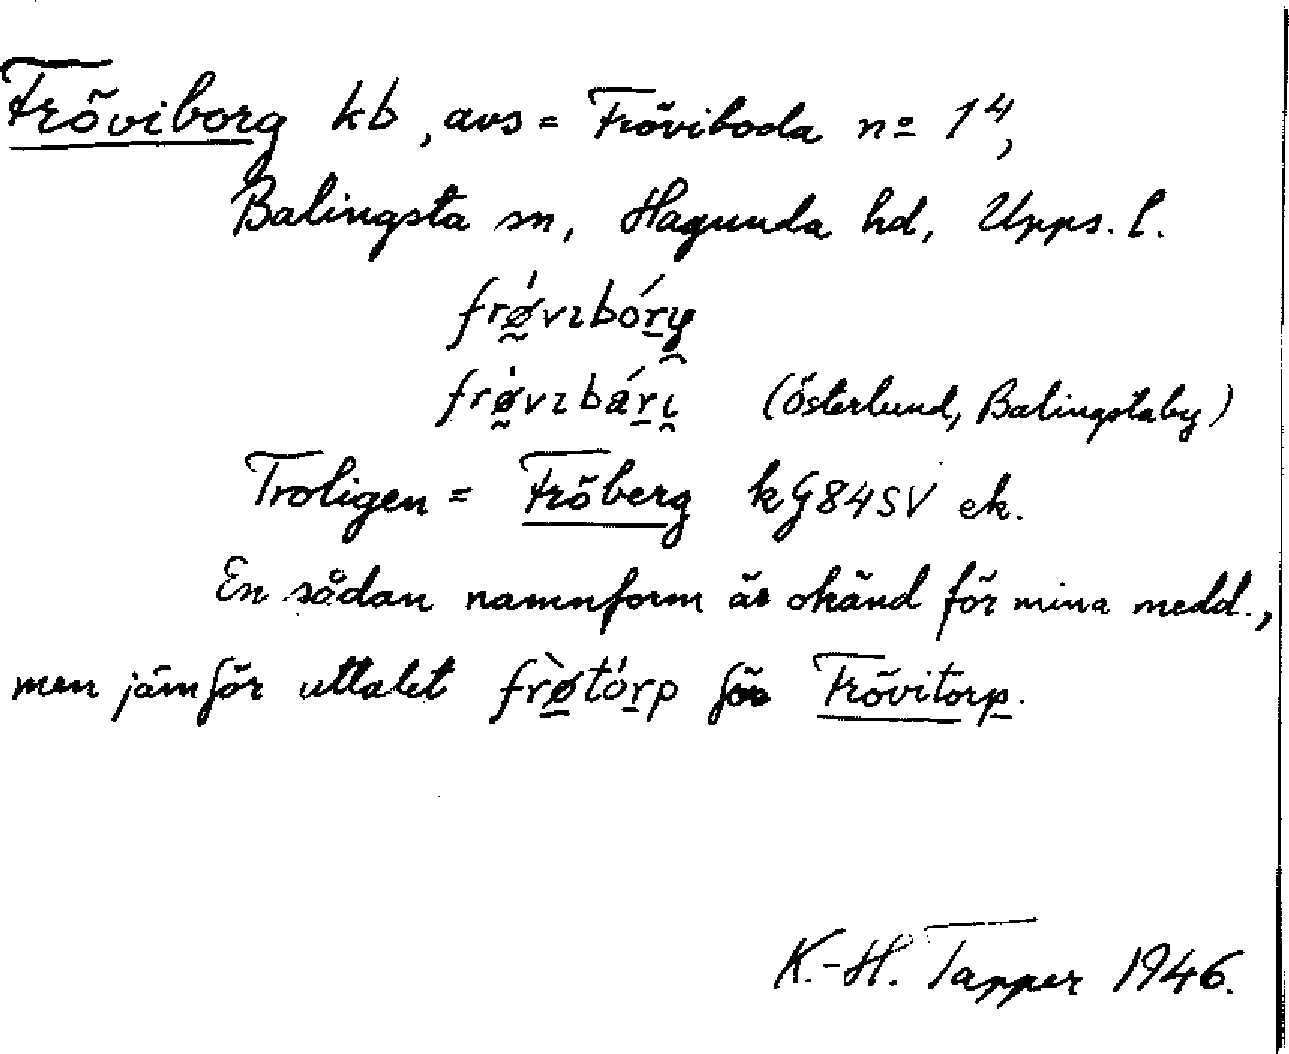 Fröviborg kb, avs = Fröviboda nº 1⁴,
Balingsta sn, Hagunda hd, Upps. l.
frǿ̰vɩbór̲y̑
frǿ̰vɩbár̲ɩ̯ (Österlund, Balingstaby)
Troligen = Fröberg kG84SV ek.
En sådan namnform är okänd för mina medd.,
men jämför uttalet frø̲̀tór̲p för Frövitorp.
K.-H. Tapper 1946.